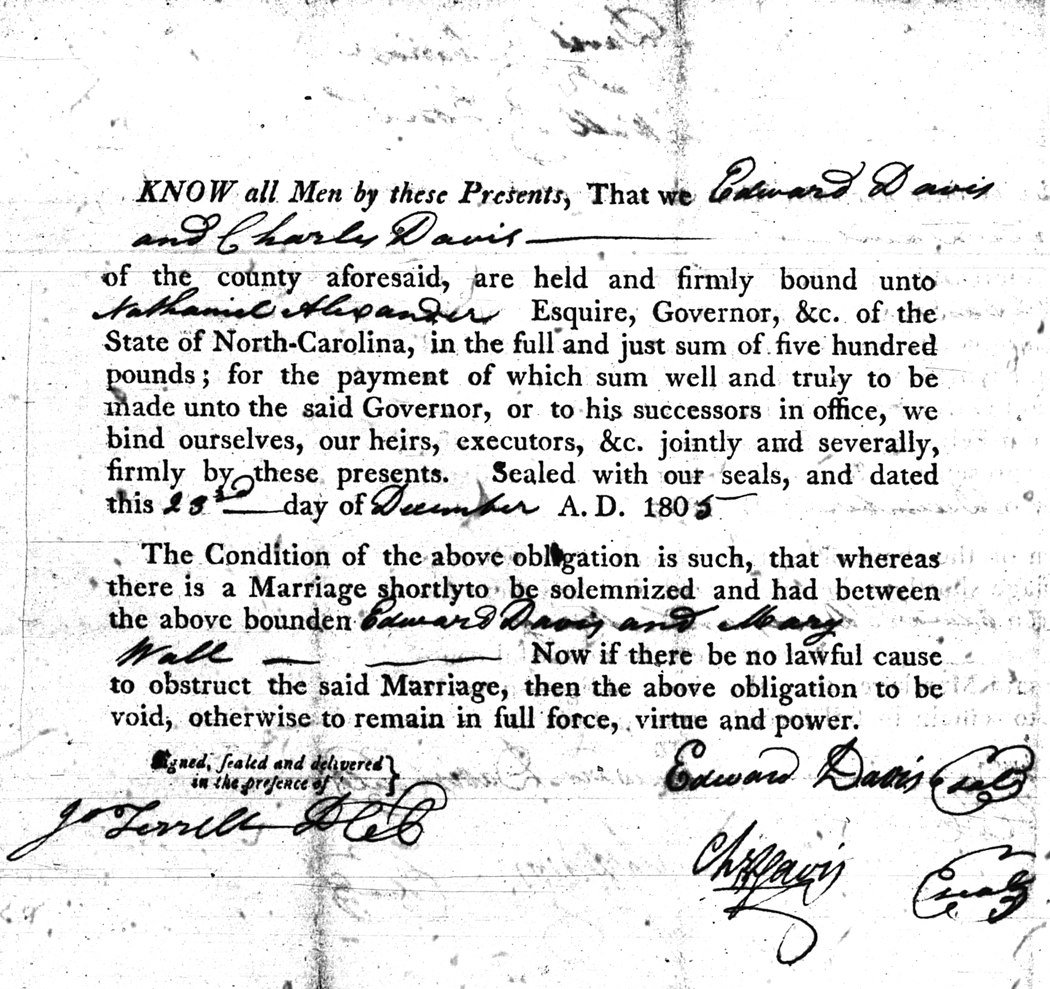 KNOW all Men by these Presents, That we Edward Davis
and Charles Davis
of the county aforesaid, are held and firmly bound unto
Nathaniel Alexander Esquire, Governor, &c. of the
State of North-Carolina, in the full and just sum of five hundred
pounds; for the payment of which sum well and truly to be
made unto the said Governor, or to his successors in office, we
bind ourselves, our heirs, executors, &c. jointly and severally,
firmly by these presents. Sealed with our seals, and dated
this 23rd day of December A. D. 1805
The Condition of the above obligation is such, that whereas
there is a Marriage shortlyto be solemnized and had between
the above bounden Edward Davis and Mary
Wall Now if there be no lawful cause
to obstruct the said Marriage, then the above obligation to be
void, otherwise to remain in full force, virtue and power.
Signed, sealed and delivered
in the presence of
Jo Terrell DCC
Edward Davis (seal)
Chs Davis (seal)